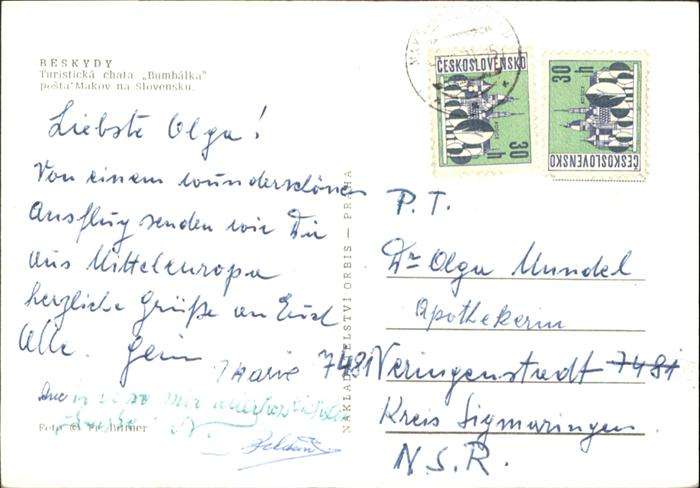 BESKYDY
Turistická chata „Bumbálka"
pošta Makov na Slovensku.
Liebste Olga!
Von einem wunderschönen
Ausflug senden wir Dir
aus Mitteleuropa
herzliche Grüße an Euch
Alle.
Marie
NAKLADATELSTVÍ ORBIS — PRAHA
ČESKOSLOVENSKO
30 h
ČESKOSLOVENSKO
30 h
P. T.
Dr Olga Mundel
Apothekerin
7481 Veringenstadt 7481
Kreis Sigmaringen
N.S.R.